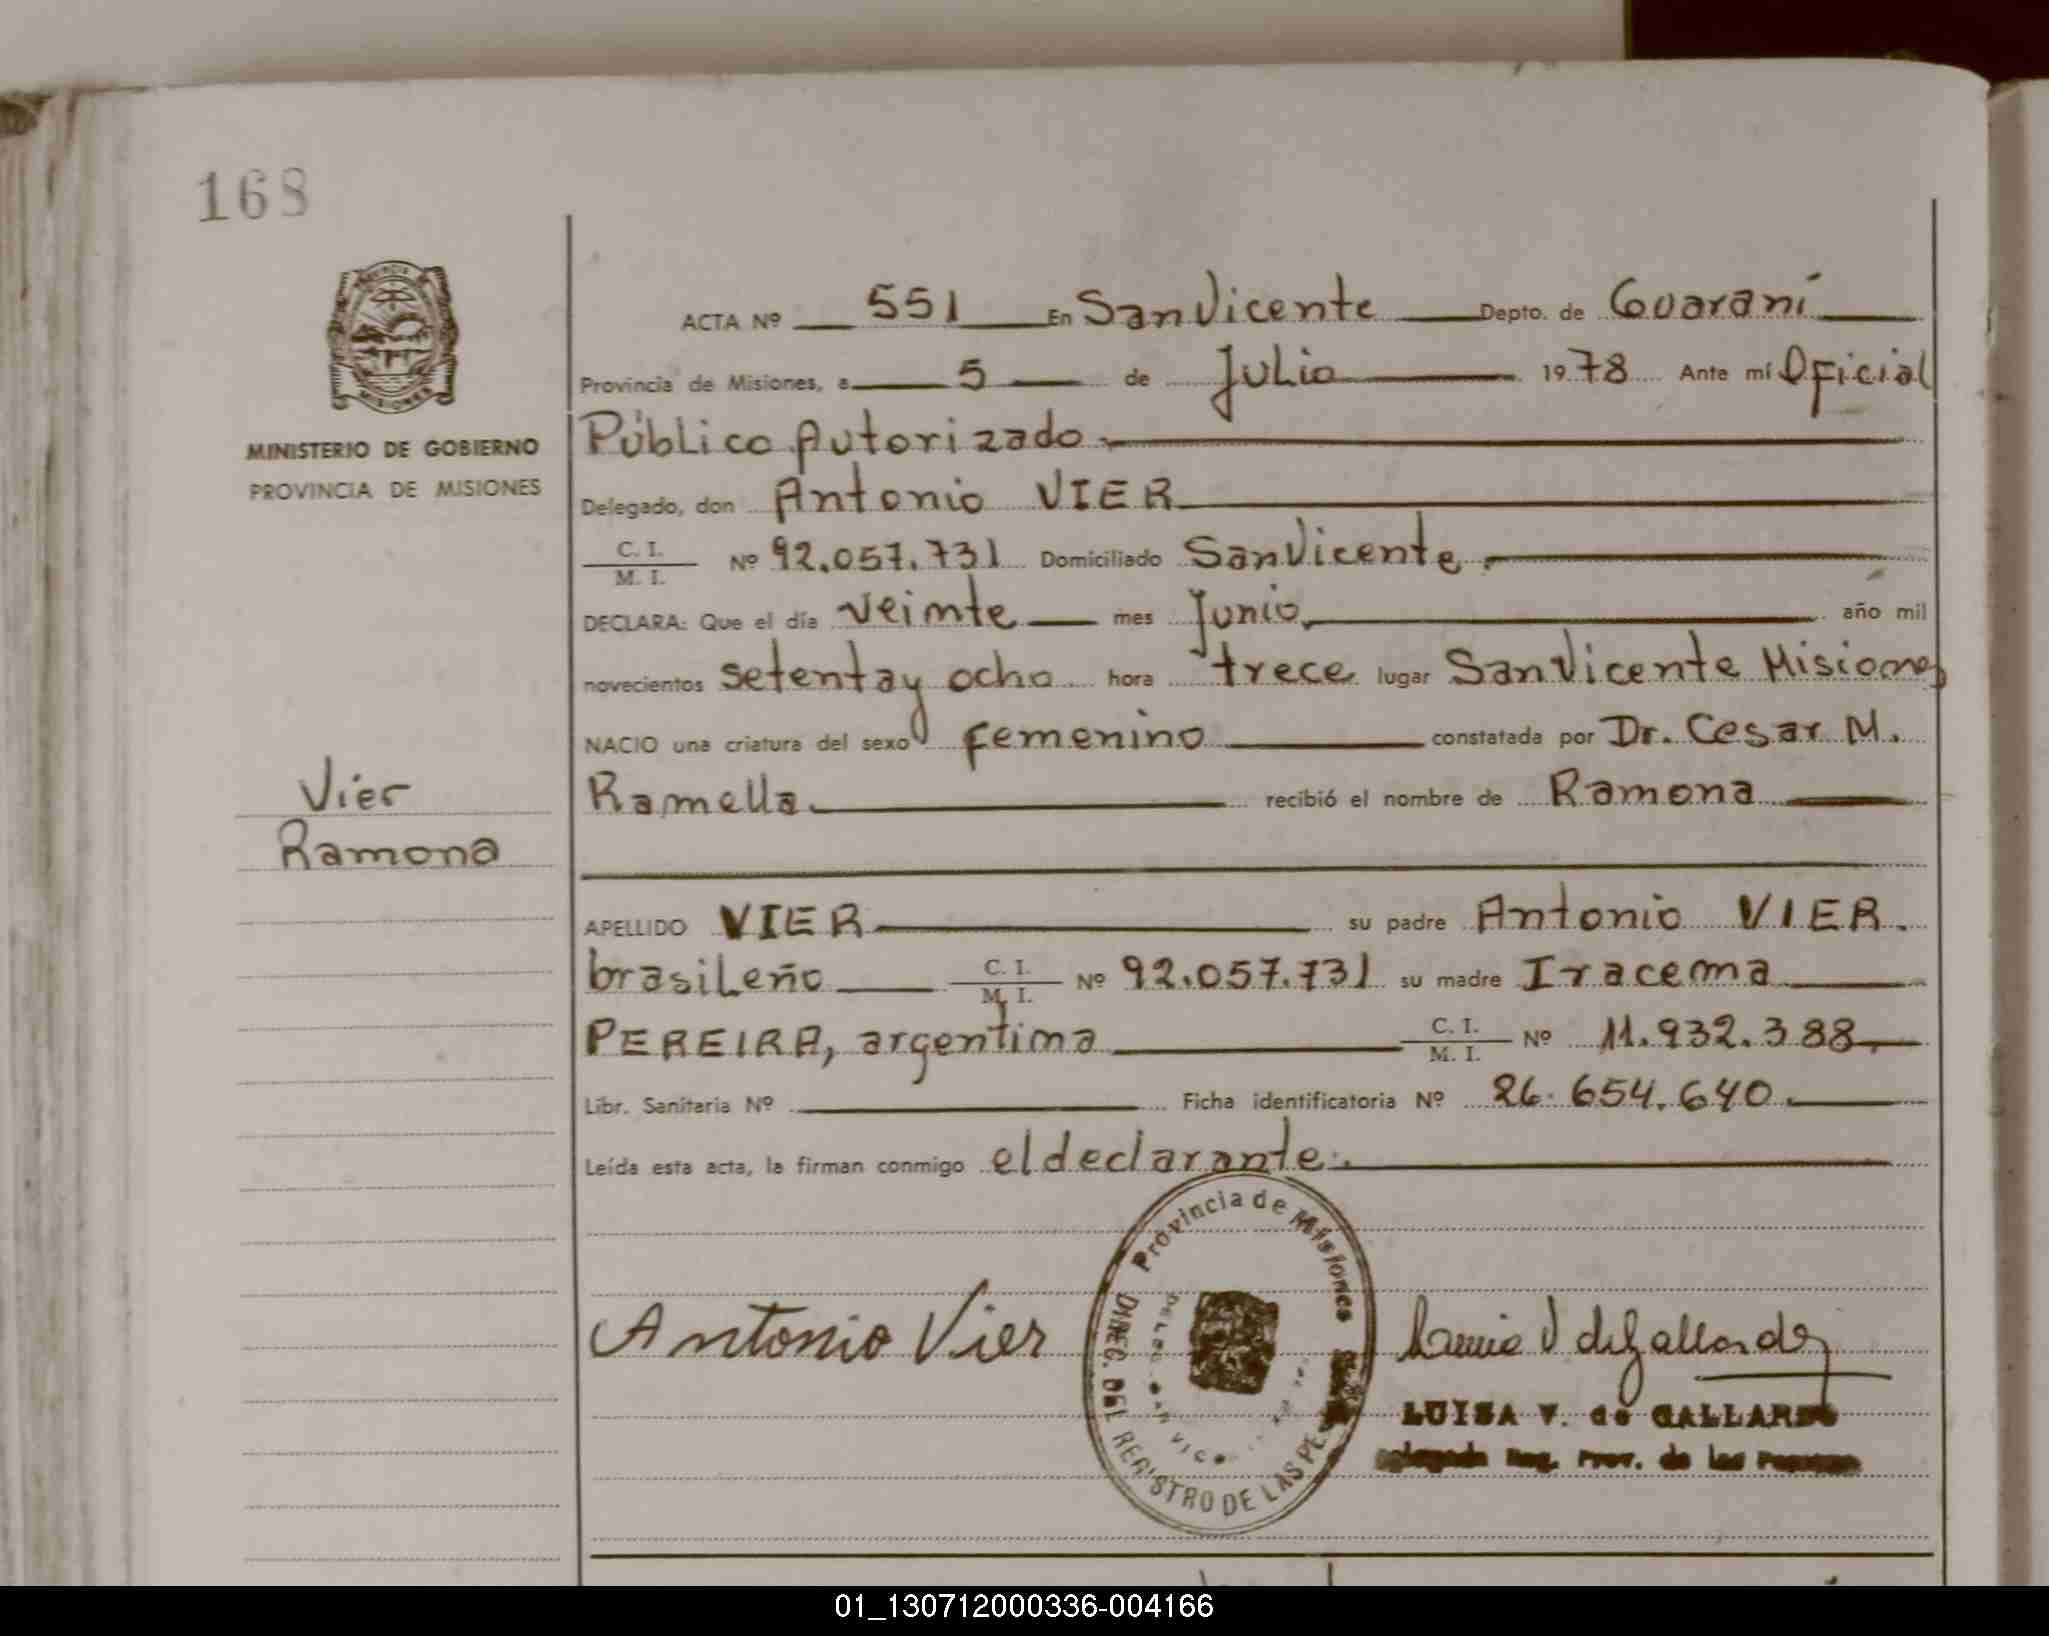 168
MINISTERIO DE GOBIERNO
PROVINCIA DE MISIONES
Vier
Ramona
ACTA Nº 551 En San Vicente Depto. de Guaraní
Provincia de Misiones, a 5 de Julio 1978 Ante mí Oficial
Público Autorizado.
Delegado, don Antonio VIER
C. I.
M. I. Nº 92.057.731 Domiciliado San Vicente.
DECLARA: Que el día veinte mes Junio año mil
novecientos setenta y ocho hora trece lugar San Vicente Misiones
NACIO una criatura del sexo femenino constatada por Dr. Cesar M.
Ramella. recibió el nombre de Ramona
APELLIDO VIER su padre Antonio VIER.
brasileño C. I.
M. I. Nº 92.057.731 su madre Iracema
PEREIRA, argentina C. I.
M. I. Nº 11.932.388.
Libr. Sanitaria Nº Ficha identificatoria Nº 26.654.640.
Leída esta acta, la firman conmigo el declarante.
Antonio Vier
Provincia de Misiones
DIREC. DEL REGISTRO DE LAS PE
LUISA V. de GALLARDO
Delegada Reg. Prov. de las Personas
01_130712000336-004166